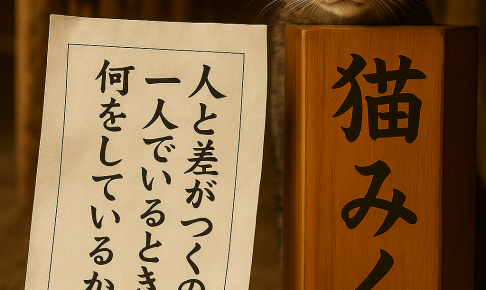 猫み
人と差がつくの
一人でいるとき
何をしているか